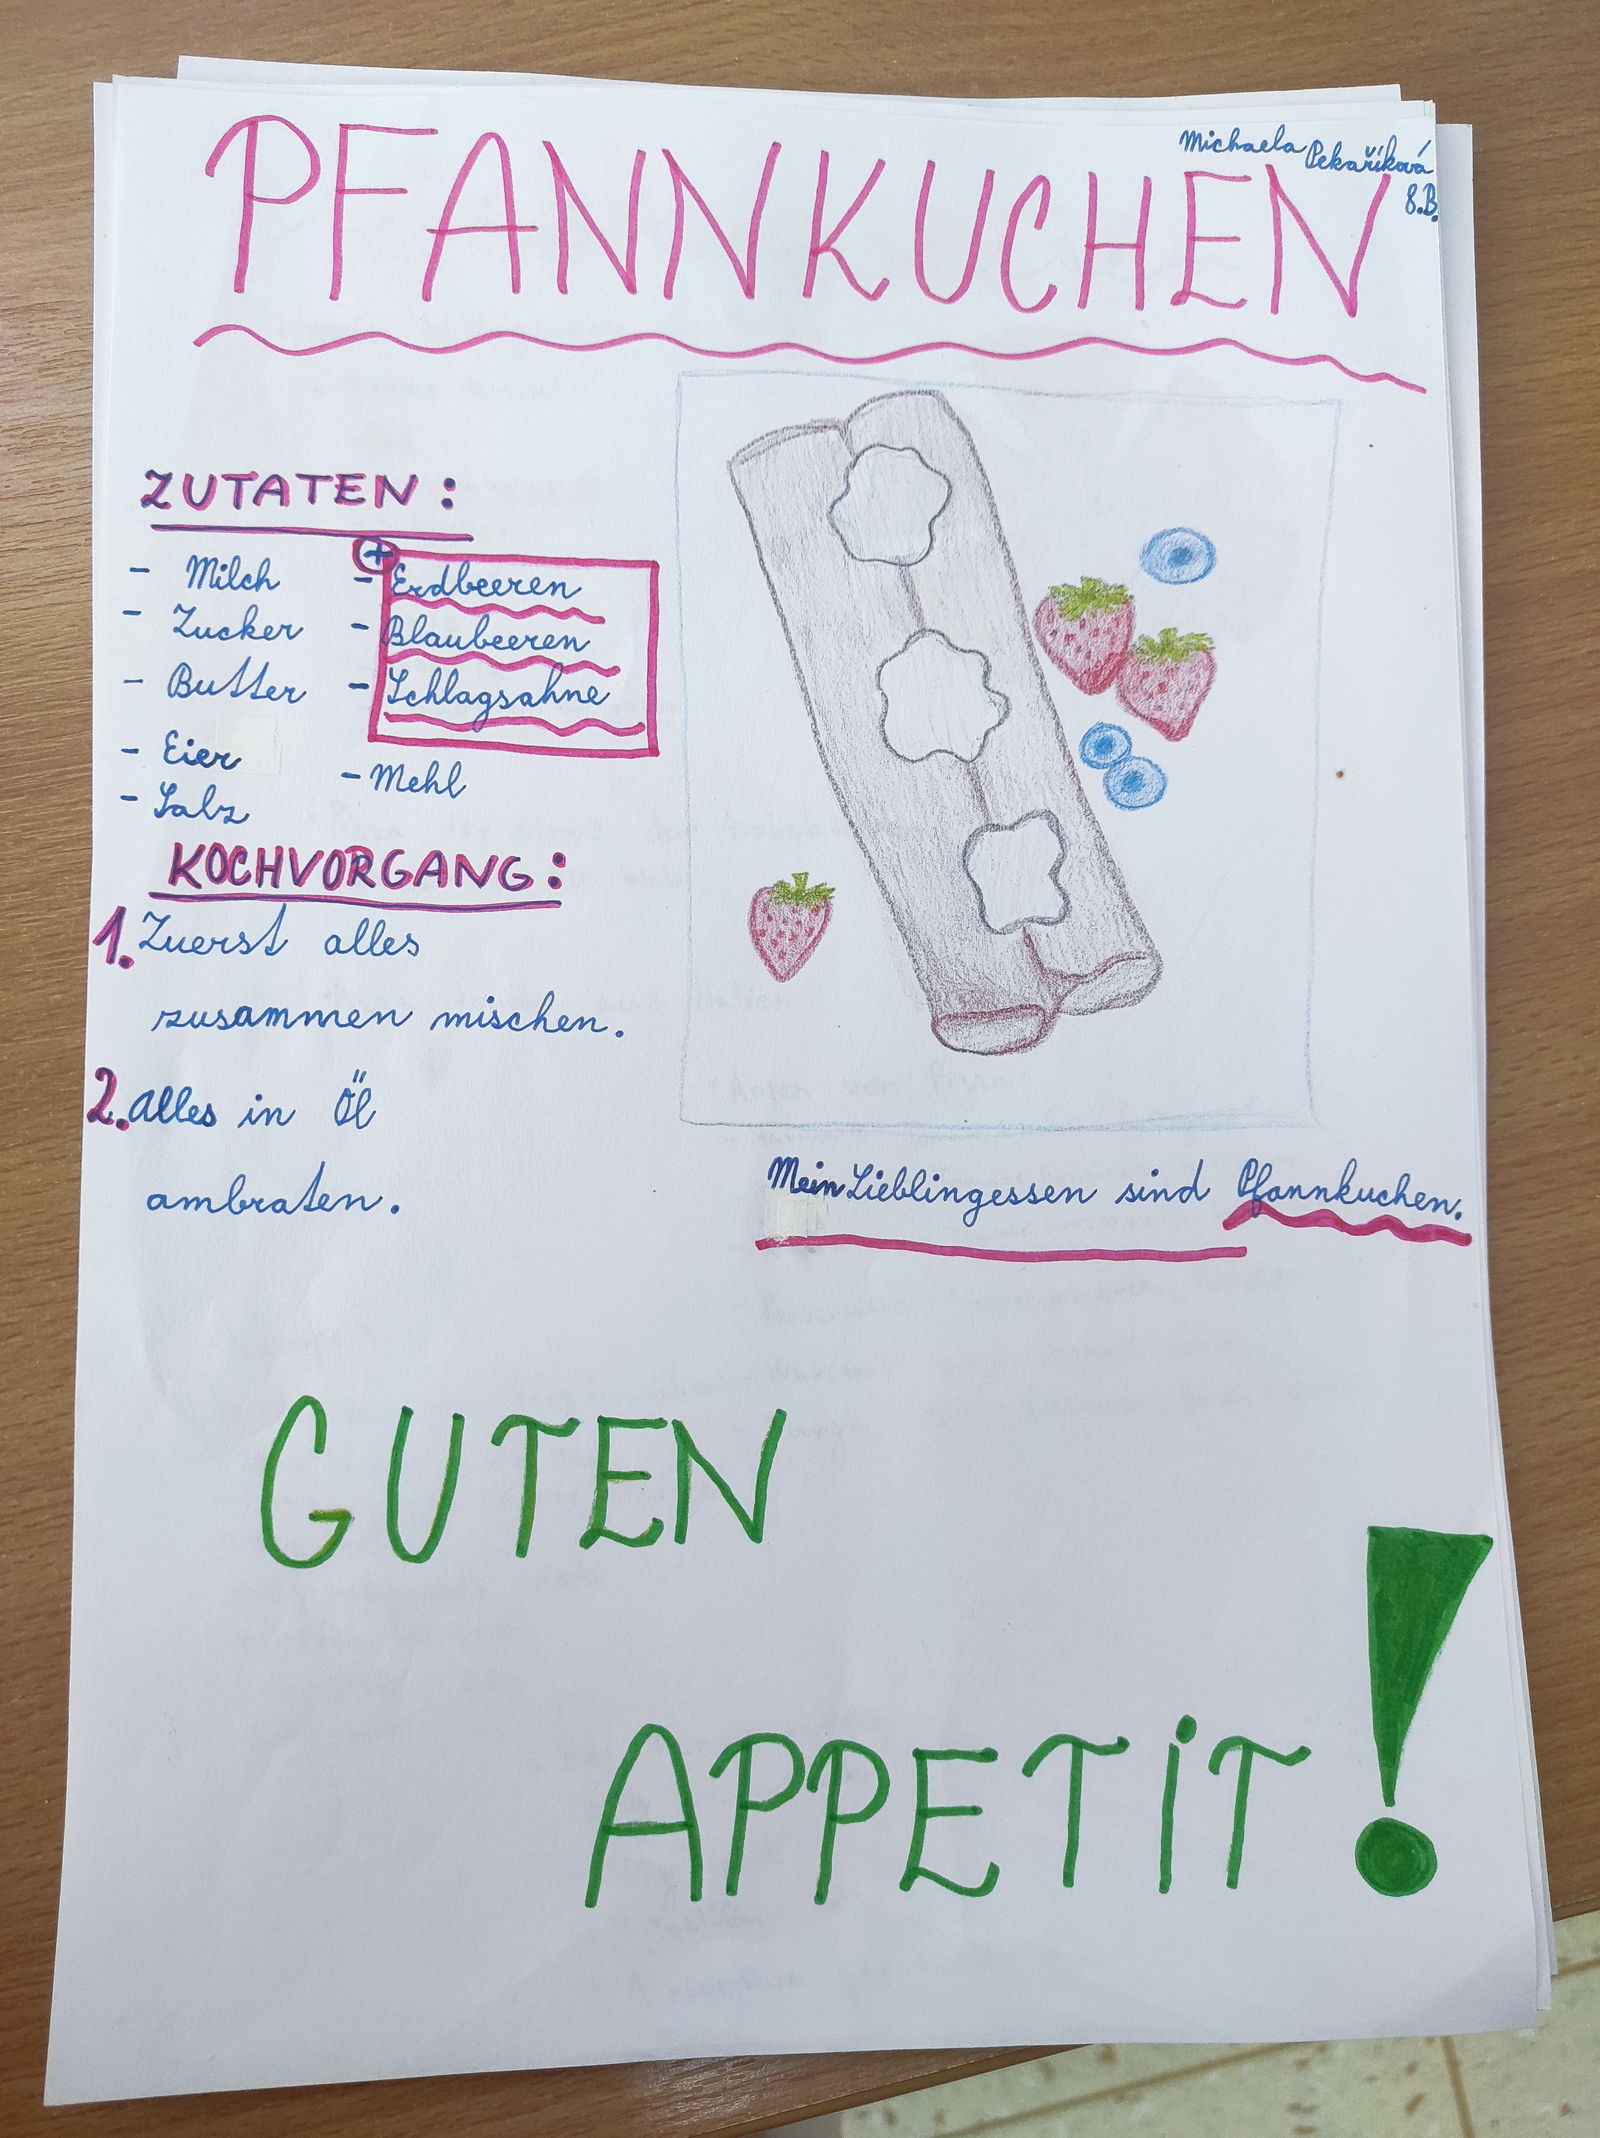 Michaela Pekaříková
8.B.
PFANNKUCHEN
ZUTATEN:
- Milch
- Zucker
- Butter
- Eier
- Salz
+
- Erdbeeren
- Blaubeeren
- Schlagsahne
- Mehl
KOCHVORGANG:
1. Zuerst alles
zusammen mischen.
2. Alles in Öl
ambraten.
Mein Lieblingessen sind Pfannkuchen.
GUTEN
APPETIT!